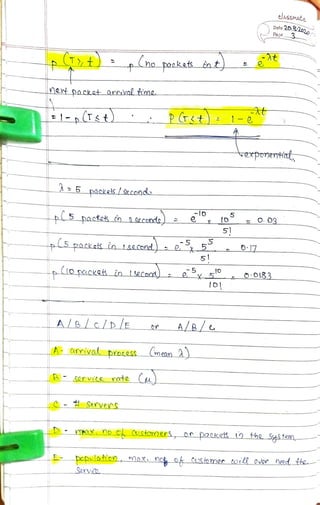 classmate
Date 20.8.2020
Page 3
p(T>t) = p(no packets in t) = e^-λt
next packet arrival time.
= 1 - p(T≤t) ∴ P(T≤t) = 1 - e^-λt
exponential
λ = 5 packets/second.
p(5 packets in 2 seconds) = e^-10 × 10^5 / 5! = 0.03
p(5 packets in 1 second) = e^-5 × 5^5 / 5! = 0.17
p(10 packets in 1 second) = e^-5 × 5^10 / 10! = 0.0183
A/B/C/D/E or A/B/C
A - arrival process (mean λ)
B - service rate (μ)
C - # servers
D - max. no of customers, or packets in the system
E - population, max. no of customer will ever need the
service